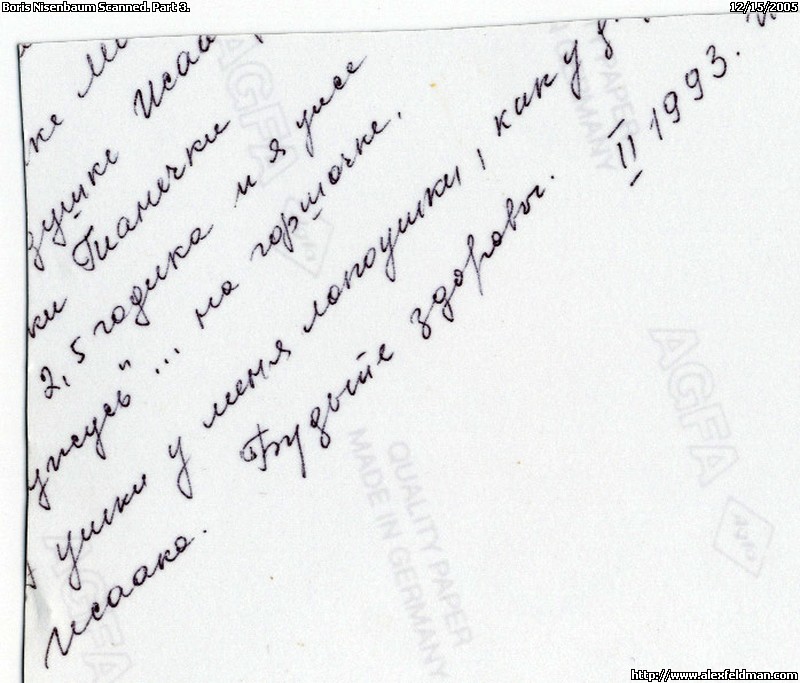 Boris Nisenbaum Scanned. Part 3.
12/15/2005
ке Ми
душке Исаа
ки
2,5 годика и я уже
ужусь" ... на горшочке.
ушки у меня лопоушки, как у д.
Исаака. Будьте здоровы. II 1993.
AGFA
AGFA
PAPER
GERMANY
AGFA
AGFA
QUALITY PAPER
MADE IN GERMANY
AGFA
http://www.alexfeldman.com